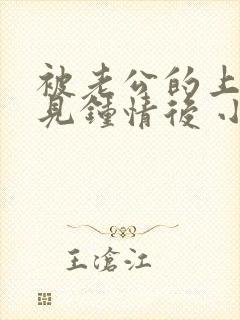 被老公的上
見鍾情後 小
王滄江